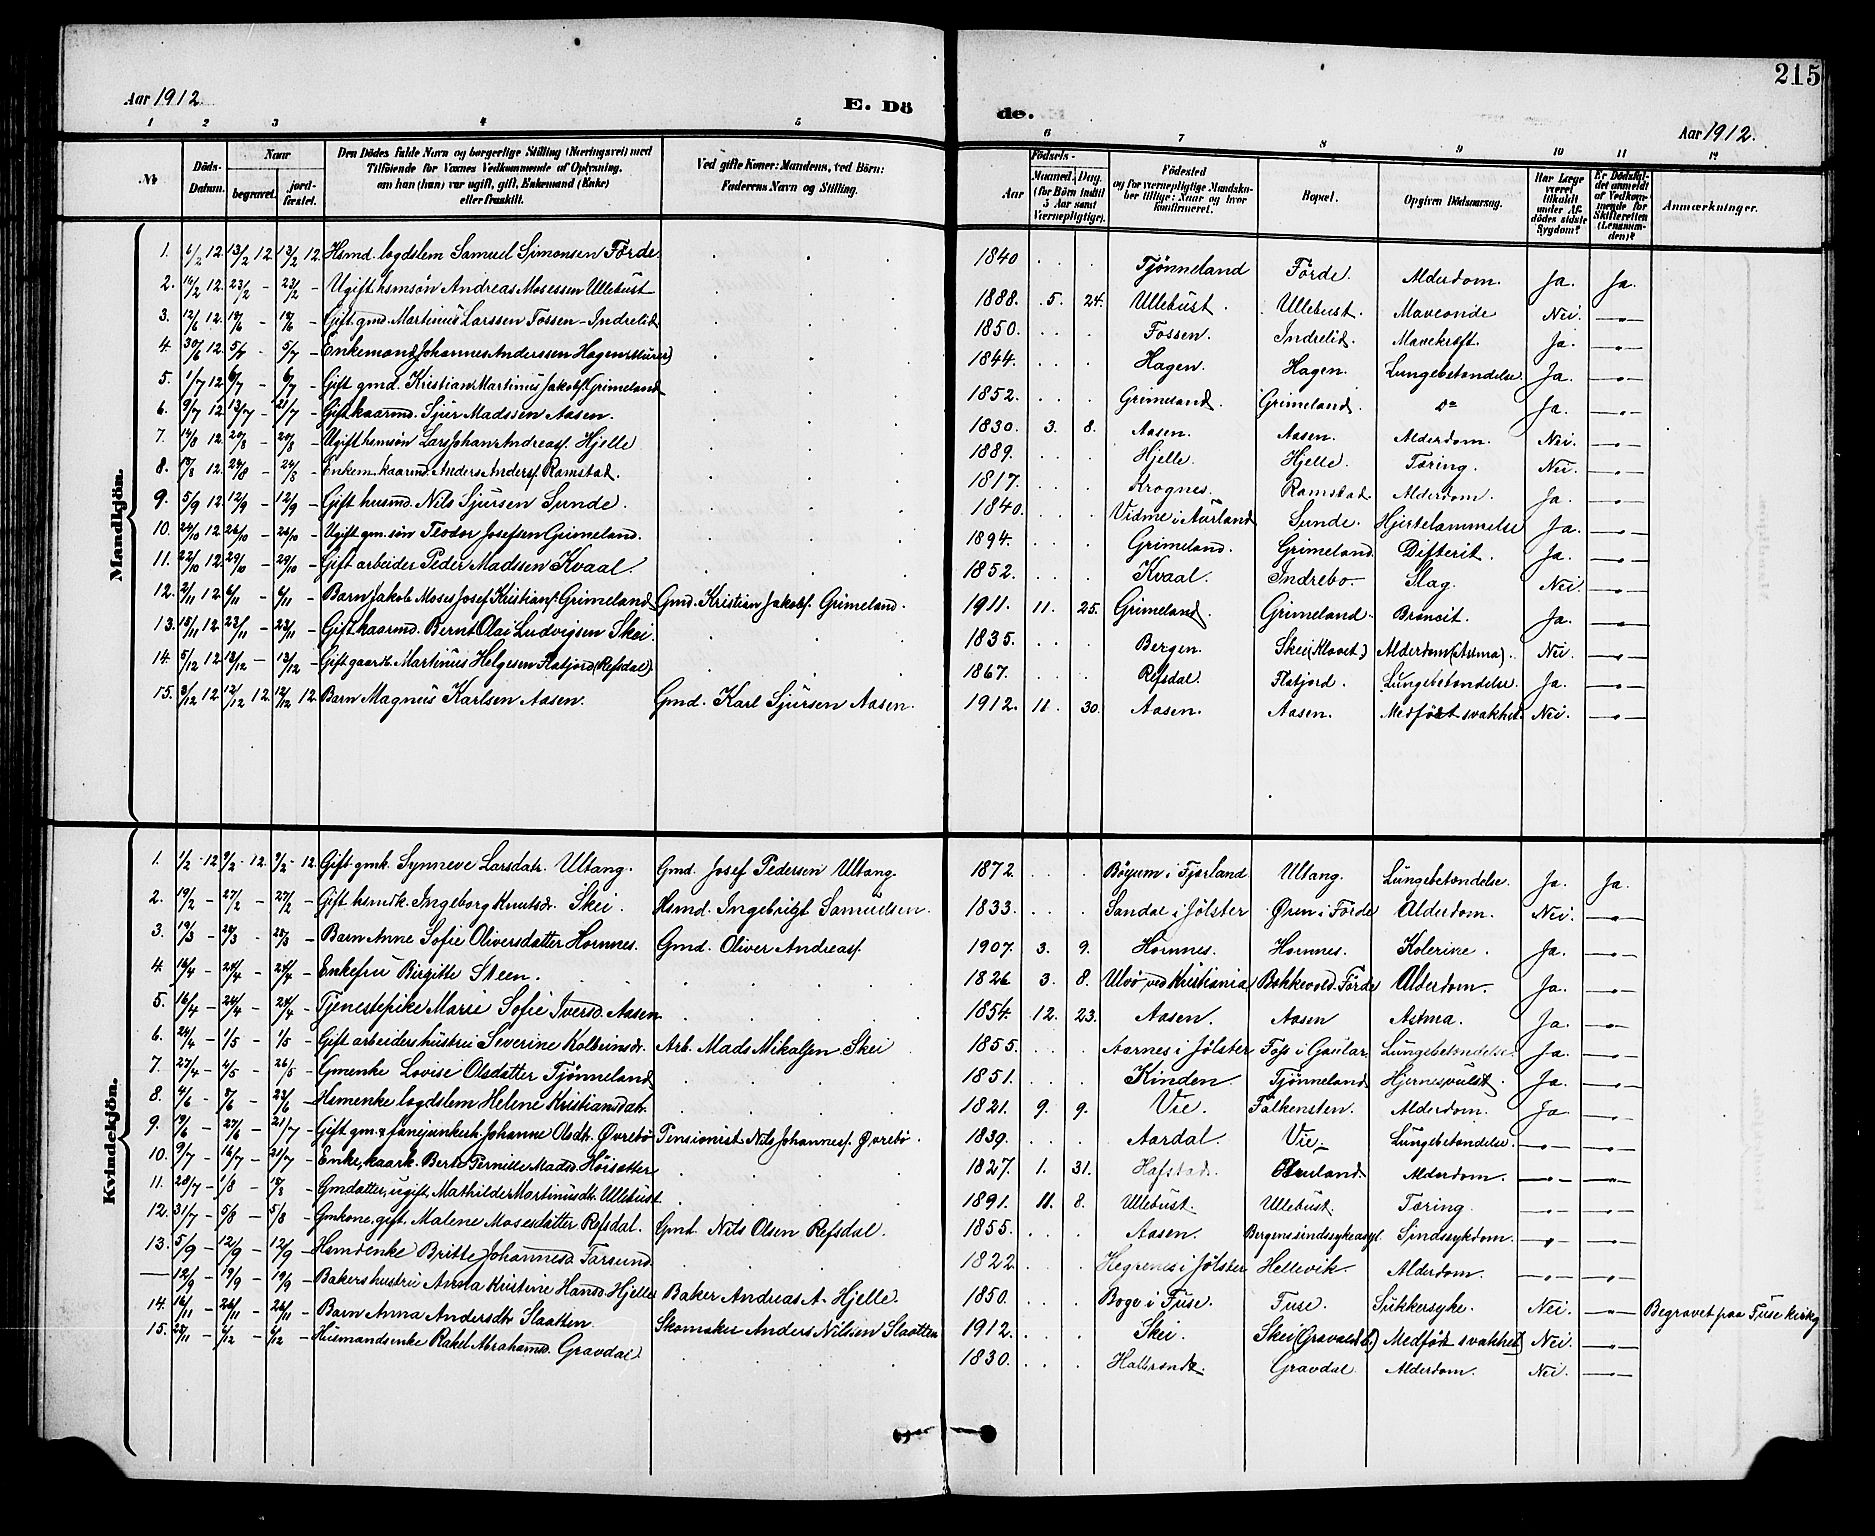 215
Aar 1912.
E. Dö de.
Aar 1912.
1 2 3 4 5 6 7 8 9 10 11 12
No Döds-Datum. Naar begravet. jord-fæstet. Den Dödes fulde Navn og borgerlige Stilling (Næringsvei) med Tilföiende for Voxnes Vedkommende af Oplysning, om han (hun) var ugift, gift, Enkemand (Enke) eller fraskilt. Ved gifte Koner: Mandens, ved Börn: Faderens Navn og Stilling. Aar Födsels- Maaned. Dag. (for Börn indtil 5 Aar samt Værnepligtige). Födested og for værnepligtige Mandskaber tillige: Naar og hvor konfirmeret. Bopæl. Opgiven Dödsaarsag. Har Læge været tilkaldt under Afdödes sidste Sygdom? Er Dödsfaldet anmeldt af Vedkommende for Skifteretten (Lensmanden)? Anmærkninger.
Mandkjön.
1. 6/2 12 13/2 12 13/2 12. Hsmd. logdslem Samuel Simonsen Förde 1840 Tjønneland Förde. Alderdom. Ja. Ja.
2. 14/2 12. 23/2 - 23/2 - Ugift hsmsøn Andreas Mosessen Ullebust 1888. 5. 24. Ullebust. Ullebust. Maveonde Nei. -"-
3. 12/6 12. 19/6 - 19/6 - Gift gmd. Martinus Larssen Fossen-Indrelid 1850. Fossen. Indrelid. Mavekræft. Ja. -"-
4. 30/6 12. 5/7 - 5/7 - Enkemand Johannes Anderssen Hagen (Murer) 1844. Hagen. Hagen. Lungebetændelse. Ja. -"-
5. 1/7 12 6/7 - 6/7 - Gift gmd. Kristian Martinus Jakobs. Grimeland 1852. Grimeland. Grimeland. Do Ja. -"-
6. 9/7 12 13/7 - 21/7 - Gift kaarmd. Sjur Madssen Aasen. 1830. 3. 8. Aasen. Aasen. Alderdom. Nei. -"-
7. 14/8 12. 20/8 - 20/8 - Ugift hsmsøn Lars Johan Andreas. Hjelle 1889. Hjelle. Hjelle. Tæring. Nei. -"-
8. 19/8 12. 24/8 - 24/8 - Enkem. kaarmd. Anders Anders. Ramstad. 1817. Krognes. Ramstad Alderdom. Ja. -"-
9. 5/9 12 12/9 - 12/9 - Gift husmd. Nils Sjursen Sunde. 1840. Vidme i Aurland Sunde. Hjertelammelse Ja. -"-
10. 24/10 12. 26/10 - 26/10 - Ugift gm.søn Teodor Josefsen Grimeland. 1894. Grimeland. Grimeland. Difterit. Ja. -"-
11. 22/10 12 29/10 - 29/10 - Gift arbeider Peder Madssen Kvaal. 1852. Kvaal. Indrebo. Slag. Nei. -"-
12. 2/11 12. 6/11 - 6/11 - Barn Jakob Moses Josef Kristians. Grimeland Gmd. Kristian Jakobs. Grimeland. 1911. 11. 25. Grimeland. Grimeland. Broncit. Ja. -"-
13. 15/11 12. 23/11 - 23/11 - Gift kaarmd. Bernt Olai Ludvigsen Skei. 1835. Bergen. Skei (Klovet.) Alderdom (Astma). Nei. -"-
14. 5/12 12 13/12 - 13/12 - Gift gaardb. Martinus Helgesen Flatjord (Refsdal). 1867. Refsdal Flatjord. Lungebetændelse. Ja. -"-
15. 3/12 12. 12/12 12 12/12 12. Barn Magnus Karlsen Aasen. Gmd. Karl Sjursen Aasen. 1912. 11. 30. Aasen. Aasen. Medfødt svakhet. Nei. -"-
Kvindekjön.
1. 1/2 - 12 9/2 - 12. 9/2 - 12. Gift gmk. Synneve Larsdatr. Ultang. Gmd. Josef Pedersen Ultang. 1872. Böyum i Fjærland. Ultang. Lungebetændelse. Ja. Ja.
2. 19/2 - 27/2 - 27/2 - Gift hsmdk. Ingeborg Knutsdr. Skei. Hsmd. Ingebrigt Samuelsen. 1833. Sandal i Jölster Øren i Förde Alderdom. Nei. -"-
3. 19/3 - 28/3 - 28/3 - Barn Anne Sofie Oliversdatter Hornnes. Gmd. Oliver Andreas. 1907. 3. 9. Hornnes. Hornnes. Kolerine. Ja. -"-
4. 16/4 - 24/4 - 24/4 - Enkefru Birgitte Steen. 1826 3. 8. Ulvö ved Kristiania Bakkevold. Förde Alderdom. Ja. -"-
5. 16/4 - 24/4 - 24/4 - Tjenestepike Marie Sofie Iversd. Aasen 1854. 12. 23. Aasen. Aasen Astma. Ja. -"-
6. 24/4 - 1/5 - 1/5 - Gift arbeidershustru Severine Kolbeinsdr. Arb. Mads Mikalsen Skei 1855. Aarnes i Jölster Foss i Gaular. Lungebetændelse. Ja. -"-
7. 27/4 - 4/5 - 26/5 - Gmenke Lovise Olsdatter Tjønneland 1851. Kinden. Tjønneland Hjernesvulst. Ja. -"-
8. 4/6 - 8/6 - 23/6 - Hsmenke logdslem Helene Kristiansdatr. 1821. 9. 9. Vie. Falkensten. Alderdom. Ja -"-
9. 19/6 - 27/6 - 21/7 - Gift gm. & fanejunkerh. Johanne Olsdtr. Øvrebö Pensionist Nils Johannes. Øvrebö. 1839. Aardal. Vie. Lungebetændelse. -"- -"-
10. 9/7 - 16/7 - 21/7 - Enke, kaark. Berte Pernille Madsd. Höisæter 1827. 1. 31. Hafstad. Alderdom. -"- -"-
11. 28/7 - 1/8 - 18/8 - Gmdatter, ugift, Mathilde Martinusdtr. Ullebust 1891. 11. 8. Ullebust. Ullebust. Tæring. -"- -"-
12. 31/7 - 5/8 - 5/8 - Gmkone, gift. Malene Mosesdatter Refsdal. Gmd. Nils Olsen Refsdal. 1855. Aasen. Bergens sindssykeasyl. Sindssykdom. -"- -"-
13. 5/9 - 12/9 - 12/9 - Hsmdenke Britte Johannesd. Farsund 1822. Hegrenes i Jölster Hellevik. Alderdom. -"- -"-
— 12/9 - 19/9 - 19/9 - Bakershustru Anna Kristine Hansd. Hjelle Baker Andreas A. Hjelle. 1850. Boge i Fuse. Fuse. Sukkersyke. Nei. -"- Begravet paa Fuse kirkg.
14. 16/11 - 26/11 - 26/11 - Barn Anna Andersdtr. Slaatten. Skomaker Anders Nilsen Slaatten 1912. Skei. Skei Medfødt svakhet Nei. -"-
15. 28/11 - 6/12 - 6/12 - Husmandsenke Rakel Abrahamsd. Gravdal 1830. Halbrendt. Gravdal. Alderdom. Nei. -"-